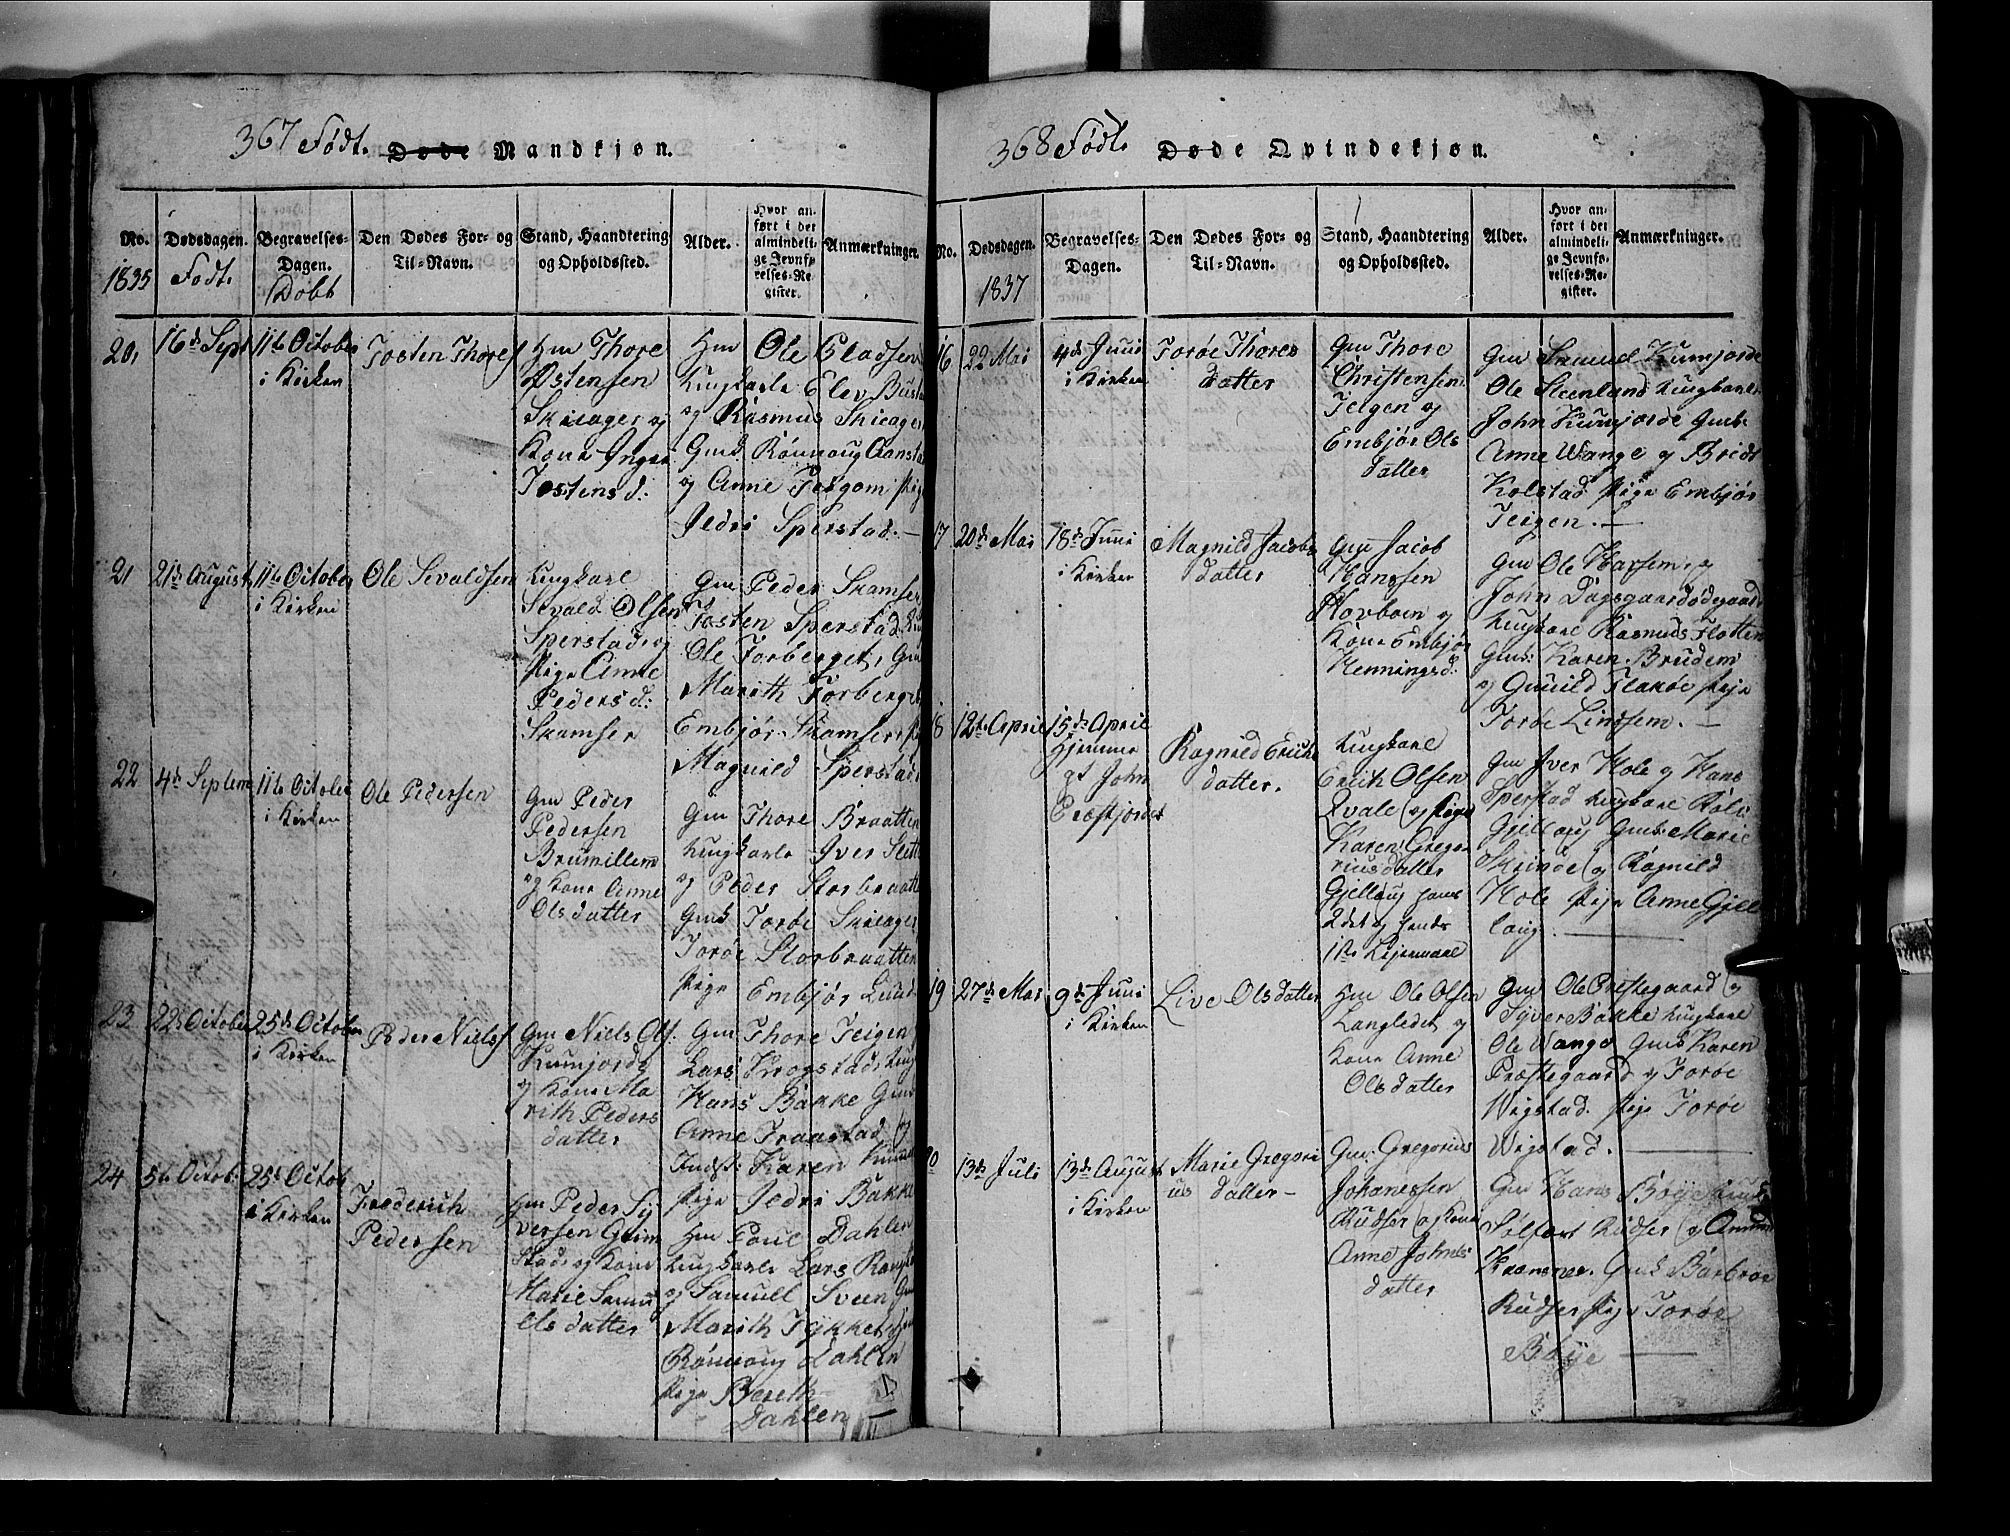 367 Født. Døde Mandkjøn.
No. Dødsdagen. Begravelses-Dagen. Den Dødes For- og Til-Navn. Stand, Haandtering og Opholdssted. Alder. Hvor anført i det almindelige Jevnførelses-Register. Anmærkninger.
1835 Født. Døbt
20, 16de Sept 11te October Tosten Thores
i Kirken
Gm Thore
Ostensen
Skieager og
Kone Inger
Tostensd:
Gm Ole Bladsen
Ungkarle Elev
og Rasmus Skieager
Gmk Rønnoug
og Anne
Jedri Sperstad. —
21 21de August 11te October Ole Sevaldsen
i Kirken
Ungkarl
Sevald Olsen
Sperstad, og
Pige Anne
Pedersd:
Skamser
Gm Peder Skamser
Tosten Sperstad,
Ole Forberget, Gm
Marith Forberget
Embjør Skamser,
Magnild Sperstad
22 4de Septem 11te October Ole Pedersen
i Kirken
Gm Peder
Pedersen
Brumillem
og Kone Anne
Olsdatter
Gm Thore Braatten
Ungkarle Iver
og Peder Storbraatte
Gmk Torøe Skieager
Torøe Storbraatten
Pige Embjør
23 22de October 25de October Peder Nielss
i Kirken
Gm Niels Ols.
Kumjorde
og Kone Ma
rith Peders
datter
Gm Thore Teigen
Lars Krogstad,
Hans Bakke Gmk
Anne Fraastad og
Karen
Pige Jedri Bakke
24 5te Octob. 25de Octob Frederich
i Kirken Pedersen
Gm Peder Sy
versen Grim
stad, og Kone
Marie Samu
elsdatter
Gm Poul Dahlen
Ungkarle Lars
og Samuell Sveen
Marith
Rønnoug Dahlen
Pige Bereth
Dahlen
368 Født. Døde Qvindekjøn.
No. Dødsdagen. Begravelses-Dagen. Den Dødes For- og Til-Navn. Stand, Haandtering og Opholdssted. Alder. Hvor anført i det almindelige Jevnførelses-Register. Anmærkninger.
1837
16 22 Mai 4de Juni Torøe Thores
i Kirken datter
Gm Thore
Christensen
Teigen og
Embjør Ols
datter
Gm Samuel Kumjorde
Ole Steenland Ungkarl
John Kumjorde Gmk:
Anne Wange og Bridt
Kolstad Pige Embjør
Teigen. —
17 20de Mai 18de Juni Magnild Jacobs
i Kirken datter
Gm Jacob
Hanssen
Hovboen og
Kone Embjør
Henningsd:
Gm Ole Harsem, og
John Dagsgaard
Ungkarl Rasmus Flotten
Gmk: Karen Brudem
og Gunild Flakøe Pige
Torøe Lindsem. —
18 12te April 15de April Ragnild Erichs
Hjemme datter.
pt John
Eræsfjordet
Ungkarl
Erich Olsen
Qvale og Pige
Karen Grego
riusdatter
Gjelloug hans
2det og hendes
1ste Leiermaal
Gm Iver Hole og Hans
Sperstad Ungkarl
Gjelloug Gmk: Marie
og Ragnild
Hole Pige Anne Gjel
loug. —
19 27de Mai 9de Juni Live Olsdatter
i Kirken
Gm Ole Olsen
Langledet og
Kone Anne
Olsdatter
Gm Ole Præstegaard og
Syver Bakke Ungkarl
Ole Wange Gmk Karen
Præstegaard og Torøe
Wigstad. Pige Torøe
Wigstad. —
20 13de Juli 13de August Marie Gregori
i Kirken us datter —
Gm: Gregorius
Johanessen
Rudser og Kone
Anne Johns
datter
Gm Hans Bøye
Rudser og
Gmk Barbroe
Rudser Pige Torøe
Bøye —